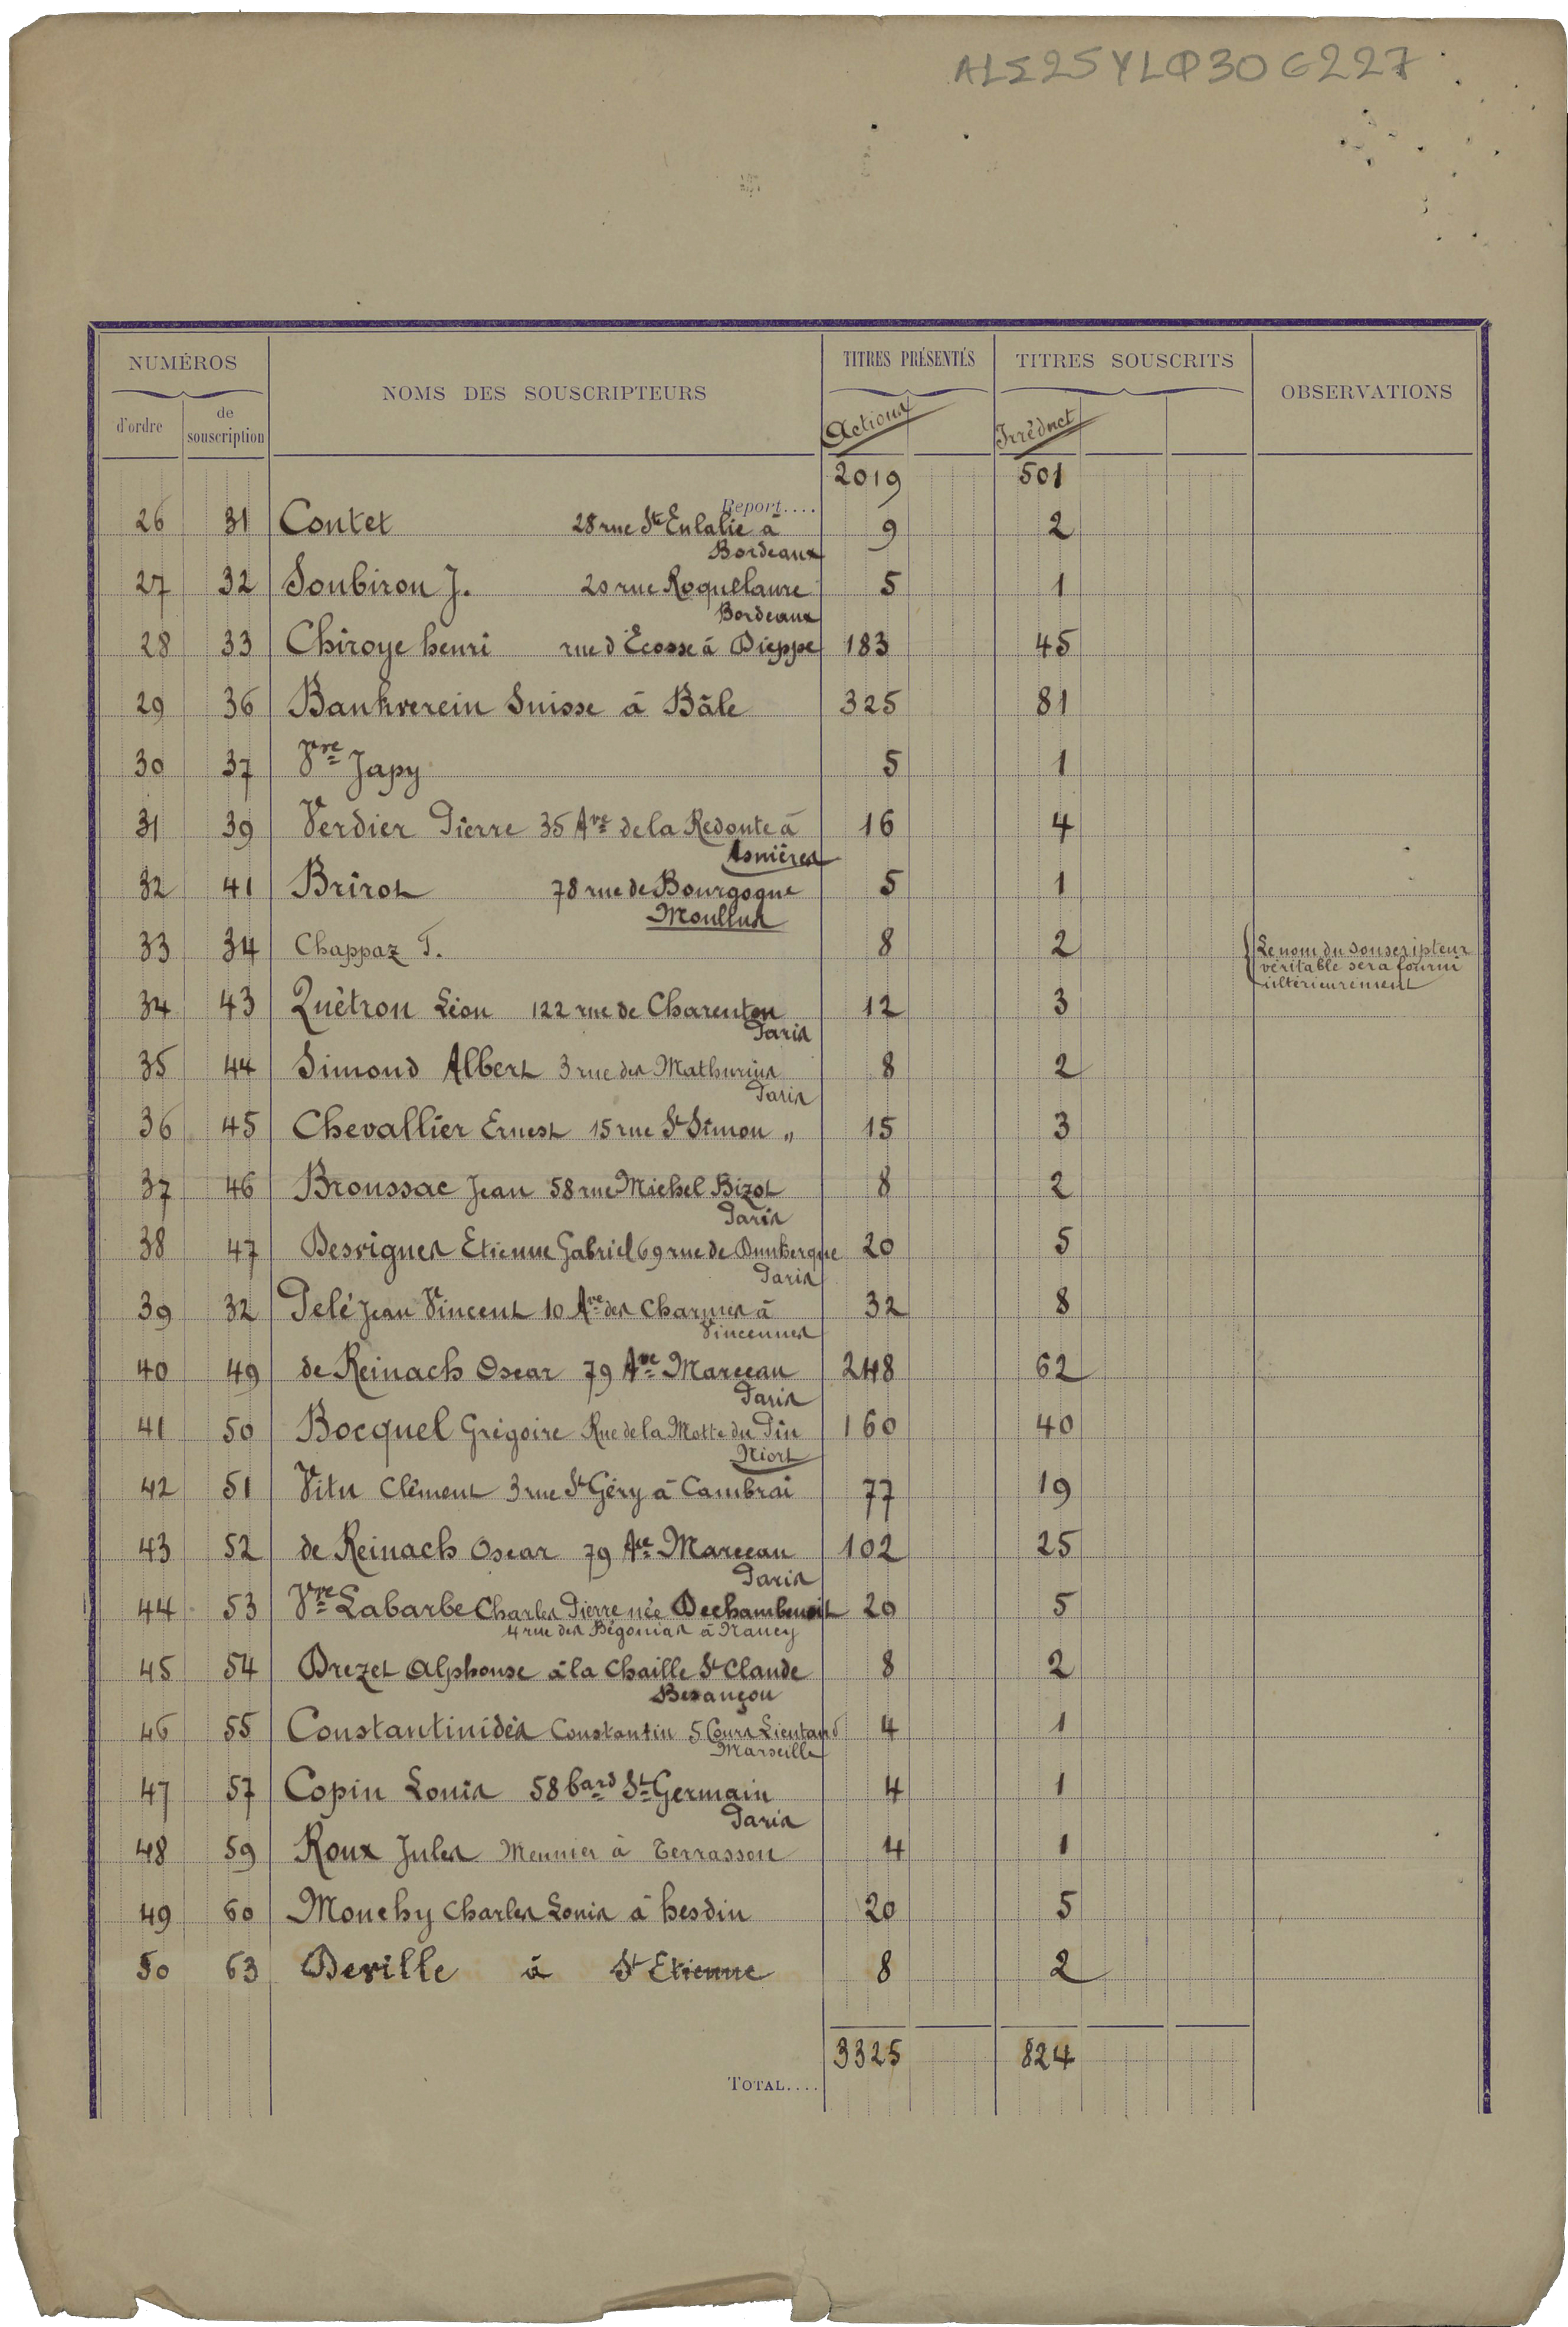 ALΣ25YLΦ30G227
NUMÉROS
NOMS DES SOUSCRIPTEURS
TITRES PRÉSENTÉS
TITRES SOUSCRITS
OBSERVATIONS
d'ordre
de souscription
Actions
Irréduct
Report.... 2019 501
26 31 Contet 28 rue Ste Eulalie à 9 2
Bordeaux
27 32 Soubiron J. 20 rue Roquelaure 5 1
Bordeaux
28 33 Chiroye henri rue d'Ecosse à Dieppe 183 45
29 36 Bankverein Suisse à Bâle 325 81
30 37 Vve Japy 5 1
31 39 Verdier Pierre 35 Ave de la Redoute à 16 4
Asnières
32 41 Brirot 78 rue de Bourgogne 5 1
Moullus
33 34 Chappaz T. 8 2 Le nom du souscripteur
véritable sera fourni
ultérieurement
34 43 Quêtron Léon 122 rue de Charenton 12 3
Paris
35 44 Simond Albert 3 rue des Mathurins 8 2
Paris
36 45 Chevallier Ernest 15 rue St Simon " 15 3
37 46 Broussac Jean 58 rue Michel Bizot 8 2
Paris
38 47 Desvignes Etienne Gabriel 69 rue de Dunkerque 20 5
Paris
39 32 Pelé Jean Vincent 10 Ave des Charmes à 32 8
Vincennes
40 49 de Reinach Oscar 79 Ave Marceau 248 62
Paris
41 50 Bocquel Grégoire Rue de la Motte du Pin 160 40
Niort
42 51 Vitu Clément 3 rue St Géry à Cambrai 77 19
43 52 de Reinach Oscar 79 Ave Marceau 102 25
Paris
44 53 Vve Labarbe Charles Pierre née Dechambenoit 20 5
4 rue des Bégonias à Nancy
45 54 Drezet Alphonse à la Chaille St Claude 8 2
Besançon
46 55 Constantinidès Constantin 5 Cours Lieutaud 4 1
Marseille
47 57 Copin Louis 58 bard St Germain 4 1
Paris
48 59 Roux Jules Meunier à Terrasson 4 1
49 60 Mouchy Charles Louis à hesdin 20 5
50 63 Deville à St Etienne 8 2
3325 824
TOTAL....